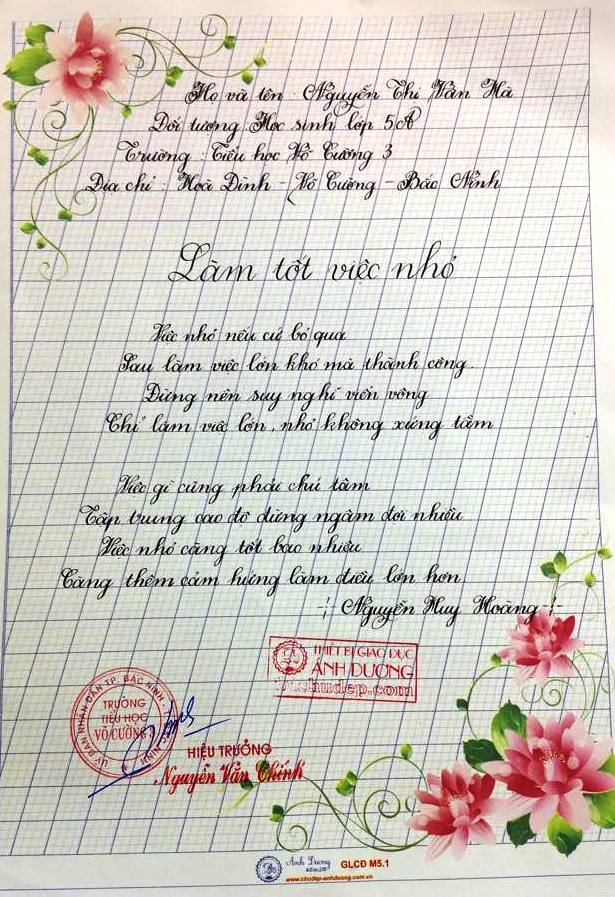 Họ và tên Nguyễn Thị Vân Hà
Đối tượng Học sinh lớp 5A
Trường : Tiểu học Võ Cường 3
Địa chỉ : Hoà Đình - Võ Cường - Bắc Ninh
Làm tốt việc nhỏ
Việc nhỏ nếu cứ bỏ qua
Sau làm việc lớn khó mà thành công.
Đừng nên suy nghĩ viển vông
Chỉ làm việc lớn, nhỏ không xứng tầm
Việc gì cũng phải chú tâm
Tập trung cao độ đừng ngâm đợi nhiều
Việc nhỏ càng tốt bao nhiêu
Càng thêm cảm hứng làm điều lớn hơn
Nguyễn Huy Hoàng
THIẾT BỊ GIÁO DỤC
ÁNH DƯƠNG
chudep.com
ỦY BAN NHÂN DÂN TP. BẮC NINH
TRƯỜNG
TIỂU HỌC
VÕ CƯỜNG 3
HIỆU TRƯỞNG
Nguyễn Văn Chính
Ánh Dương
GLCĐ M5.1
www.chudep-anhduong.com.vn